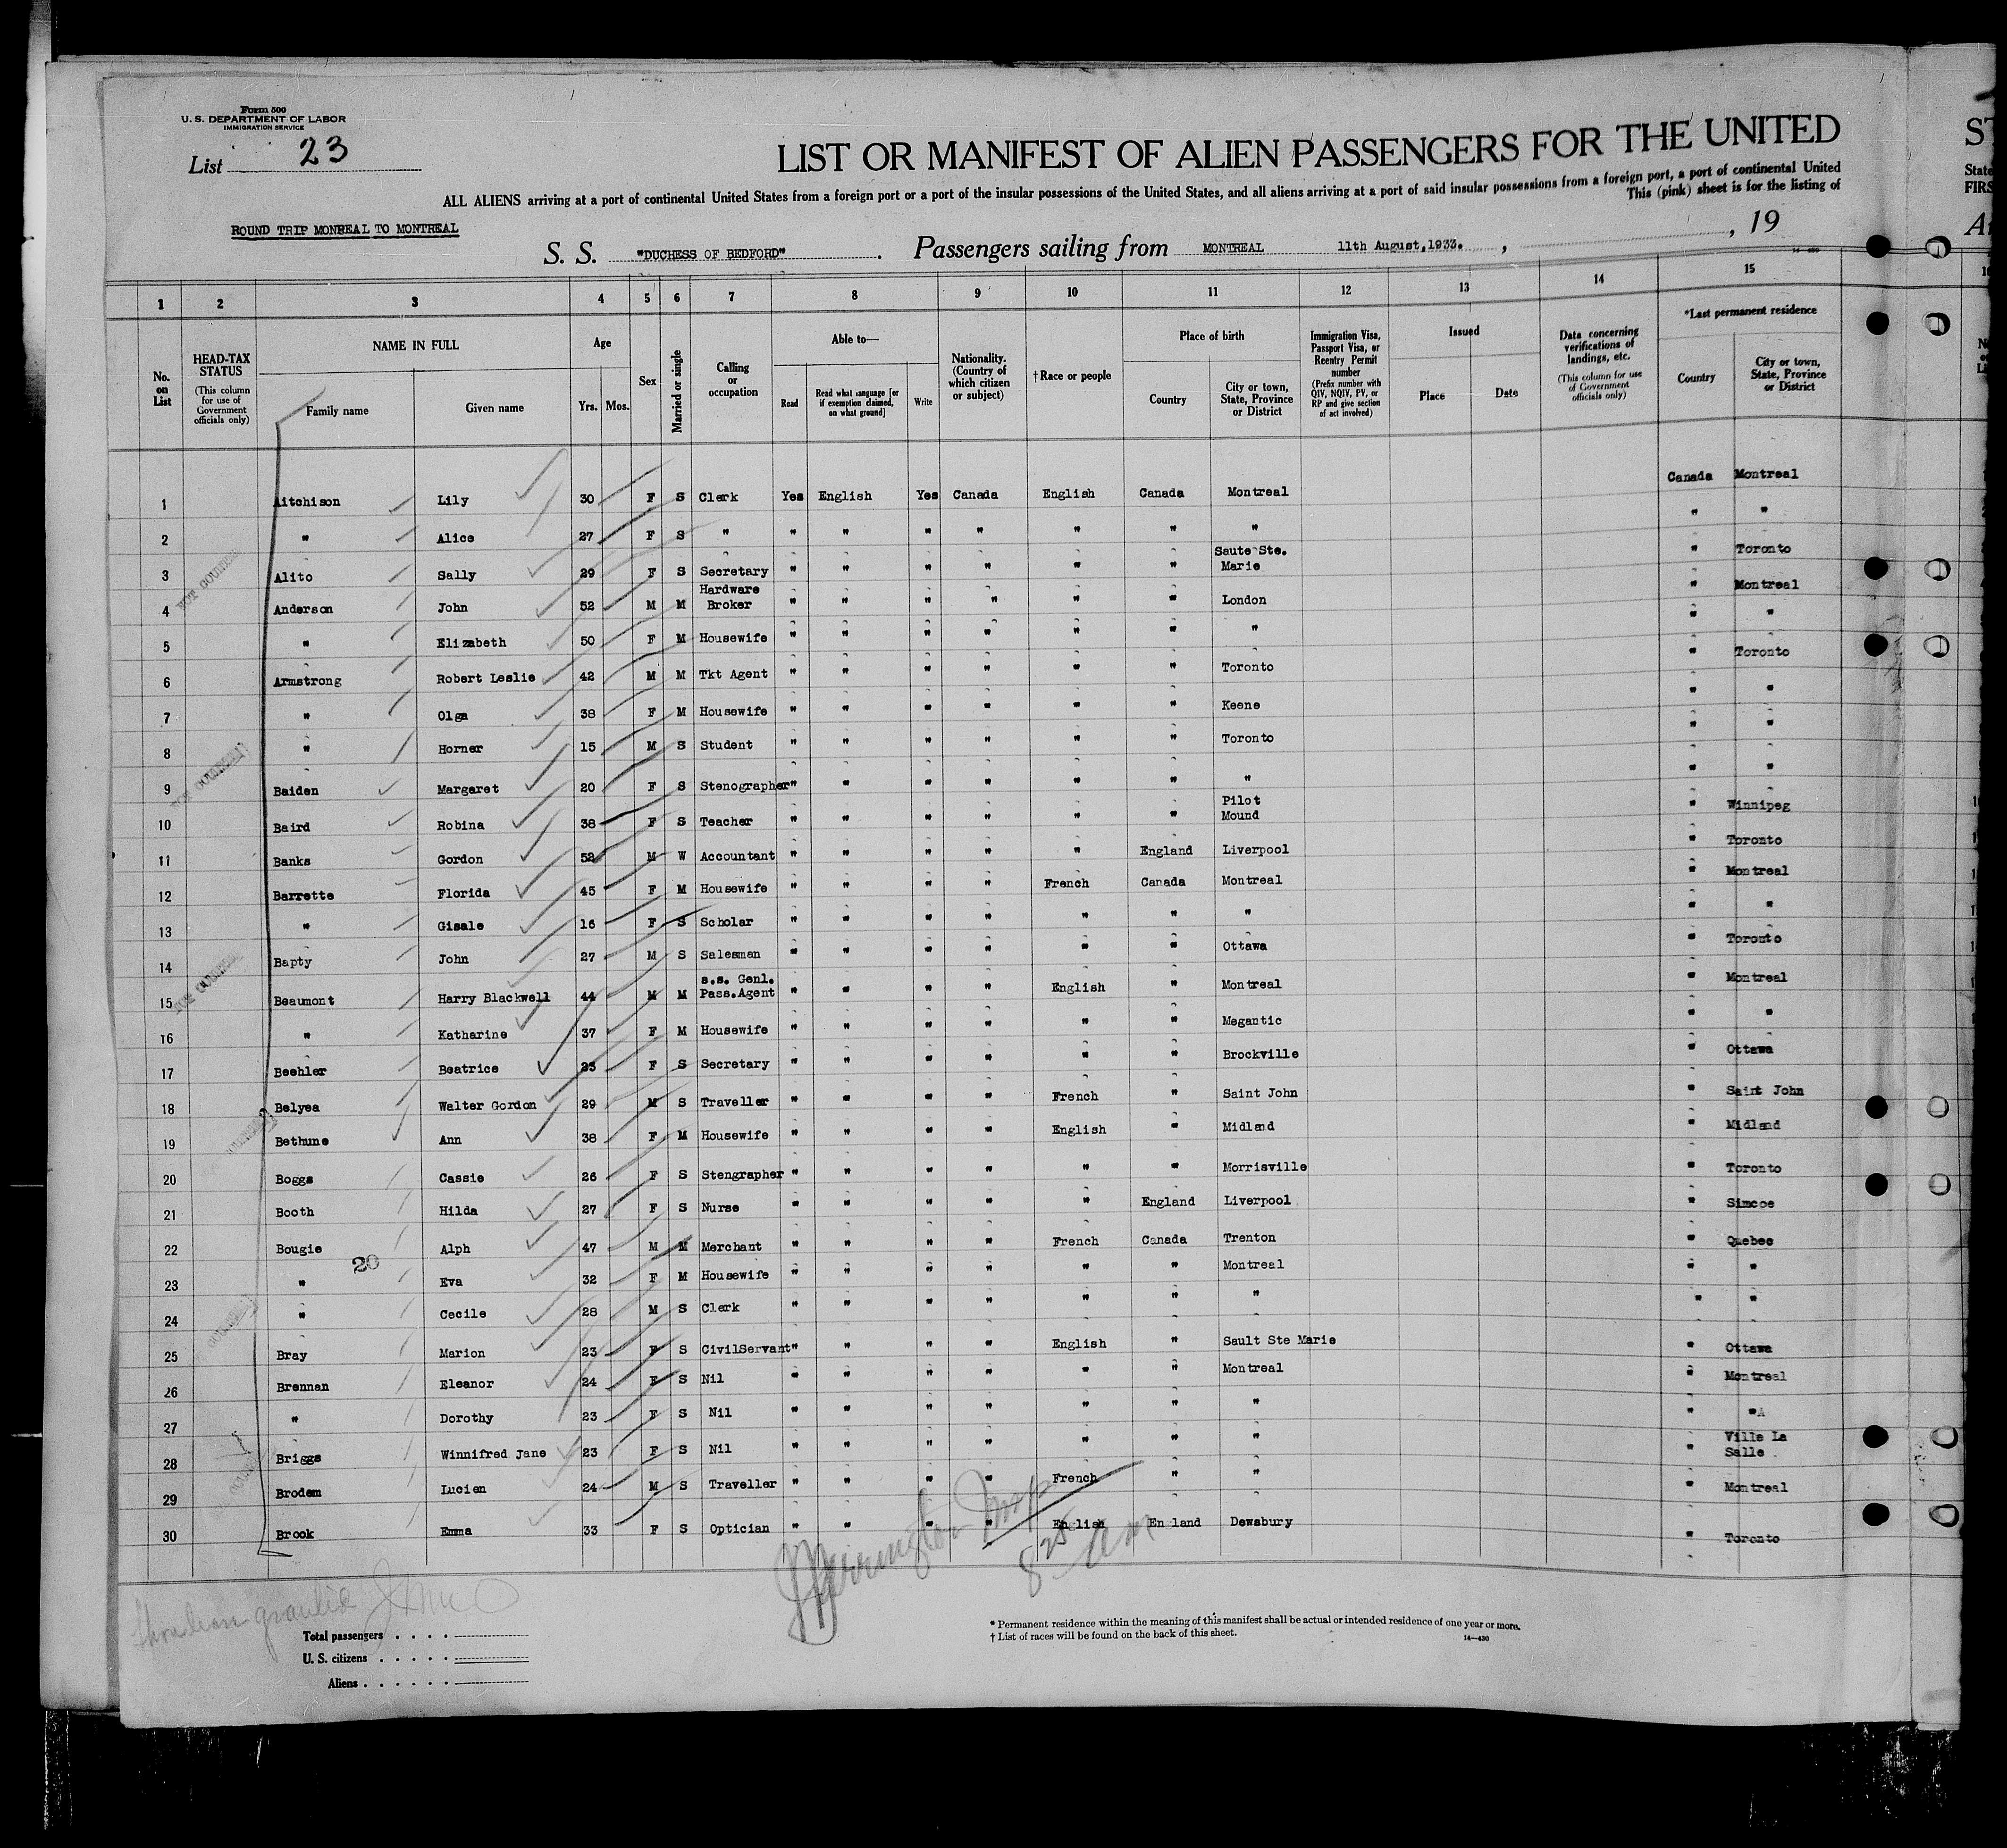 Form 500
U. S. DEPARTMENT OF LABOR
IMMIGRATION SERVICE
List 23
LIST OR MANIFEST OF ALIEN PASSENGERS FOR THE UNITED ST
ALL ALIENS arriving at a port of continental United States from a foreign port or a port of the insular possessions of the United States, and all aliens arriving at a port of said insular possessions from a foreign port, a port of continental United State
This (pink) sheet is for the listing of FIRS
ROUND TRIP MONREAL TO MONTREAL
S. S. "DUCHESS OF BEDFORD". Passengers sailing from MONTREAL 11th August,1933. , , 19
1 2 3 4 5 6 7 8 9 10 11 12 13 14 15
No. on List
HEAD-TAX STATUS (This column for use of Government officials only)
NAME IN FULL Family name Given name
Age Yrs. Mos.
Sex
Married or single
Calling or occupation
Able to— Read Read what language [or if exemption claimed, on what ground] Write
Nationality. (Country of which citizen or subject)
†Race or people
Place of birth Country City or town, State, Province or District
Immigration Visa, Passport Visa, or Reentry Permit number (Prefix number with QIV, NQIV, PV, or RP and give section of act involved)
Issued Place Date
Data concerning verifications of landings, etc. (This column for use of Government officials only)
*Last permanent residence Country City or town, State, Province or District
1 Aitchison Lily 30 F S Clerk Yes English Yes Canada English Canada Montreal Canada Montreal
2 " Alice 27 F S " " " " " " " " " "
3 Alito Sally 29 F S Secretary " " " " " " Saute Ste. Marie " Toronto
4 Anderson John 52 M M Hardware Broker " " " " " " London " Montreal
5 " Elizabeth 50 F M Housewife " " " " " " " " "
6 Armstrong Robert Leslie 42 M M Tkt Agent " " " " " " Toronto " Toronto
7 " Olga 38 F M Housewife " " " " " " Keene " "
8 " Horner 15 M S Student " " " " " " Toronto " "
9 Baiden Margaret 20 F S Stenographer " " " " " " " " "
10 Baird Robina 38 F S Teacher " " " " " " Pilot Mound " Winnipeg
11 Banks Gordon 52 M W Accountant " " " " " England Liverpool " Toronto
12 Barrette Florida 45 F M Housewife " " " " French Canada Montreal " Montreal
13 " Gisale 16 F S Scholar " " " " " " " " "
14 Bapty John 27 M S Salesman " " " " " " Ottawa " Toronto
15 Beaumont Harry Blackwell 44 M M s.s. Genl. Pass.Agent " " " " English " Montreal " Montreal
16 " Katharine 37 F M Housewife " " " " " " Megantic " "
17 Beehler Beatrice 23 F S Secretary " " " " " " Brockville " Ottawa
18 Belyea Walter Gordon 29 M S Traveller " " " " French " Saint John " Saint John
19 Bethune Ann 38 F M Housewife " " " " English " Midland " Midland
20 Boggs Cassie 26 F S Stengrapher " " " " " " Morrisville " Toronto
21 Booth Hilda 27 F S Nurse " " " " " England Liverpool " Simcoe
22 Bougie Alph 47 M M Merchant " " " " French Canada Trenton " Quebec
20
23 " Eva 32 F M Housewife " " " " " " Montreal " "
24 " Cecile 28 M S Clerk " " " " " " " " "
25 Bray Marion 23 F S CivilServant " " " " English " Sault Ste Marie " Ottawa
26 Brennan Eleanor 24 F S Nil " " " " " " Montreal " Montreal
27 " Dorothy 23 F S Nil " " " " " " " " "
28 Briggs Winnifred Jane 23 F S Nil " " " " " " " " Ville La Salle
29 Brodem Lucien 24 M S Traveller " " " " French " " " Montreal
30 Brook Emma 33 F S Optician " " " " English En land Dewsbury " Toronto
8 25 am
Total passengers . . . .
U. S. citizens . . . . .
Aliens . . . . . .
* Permanent residence within the meaning of this manifest shall be actual or intended residence of one year or more.
† List of races will be found on the back of this sheet.
14—430